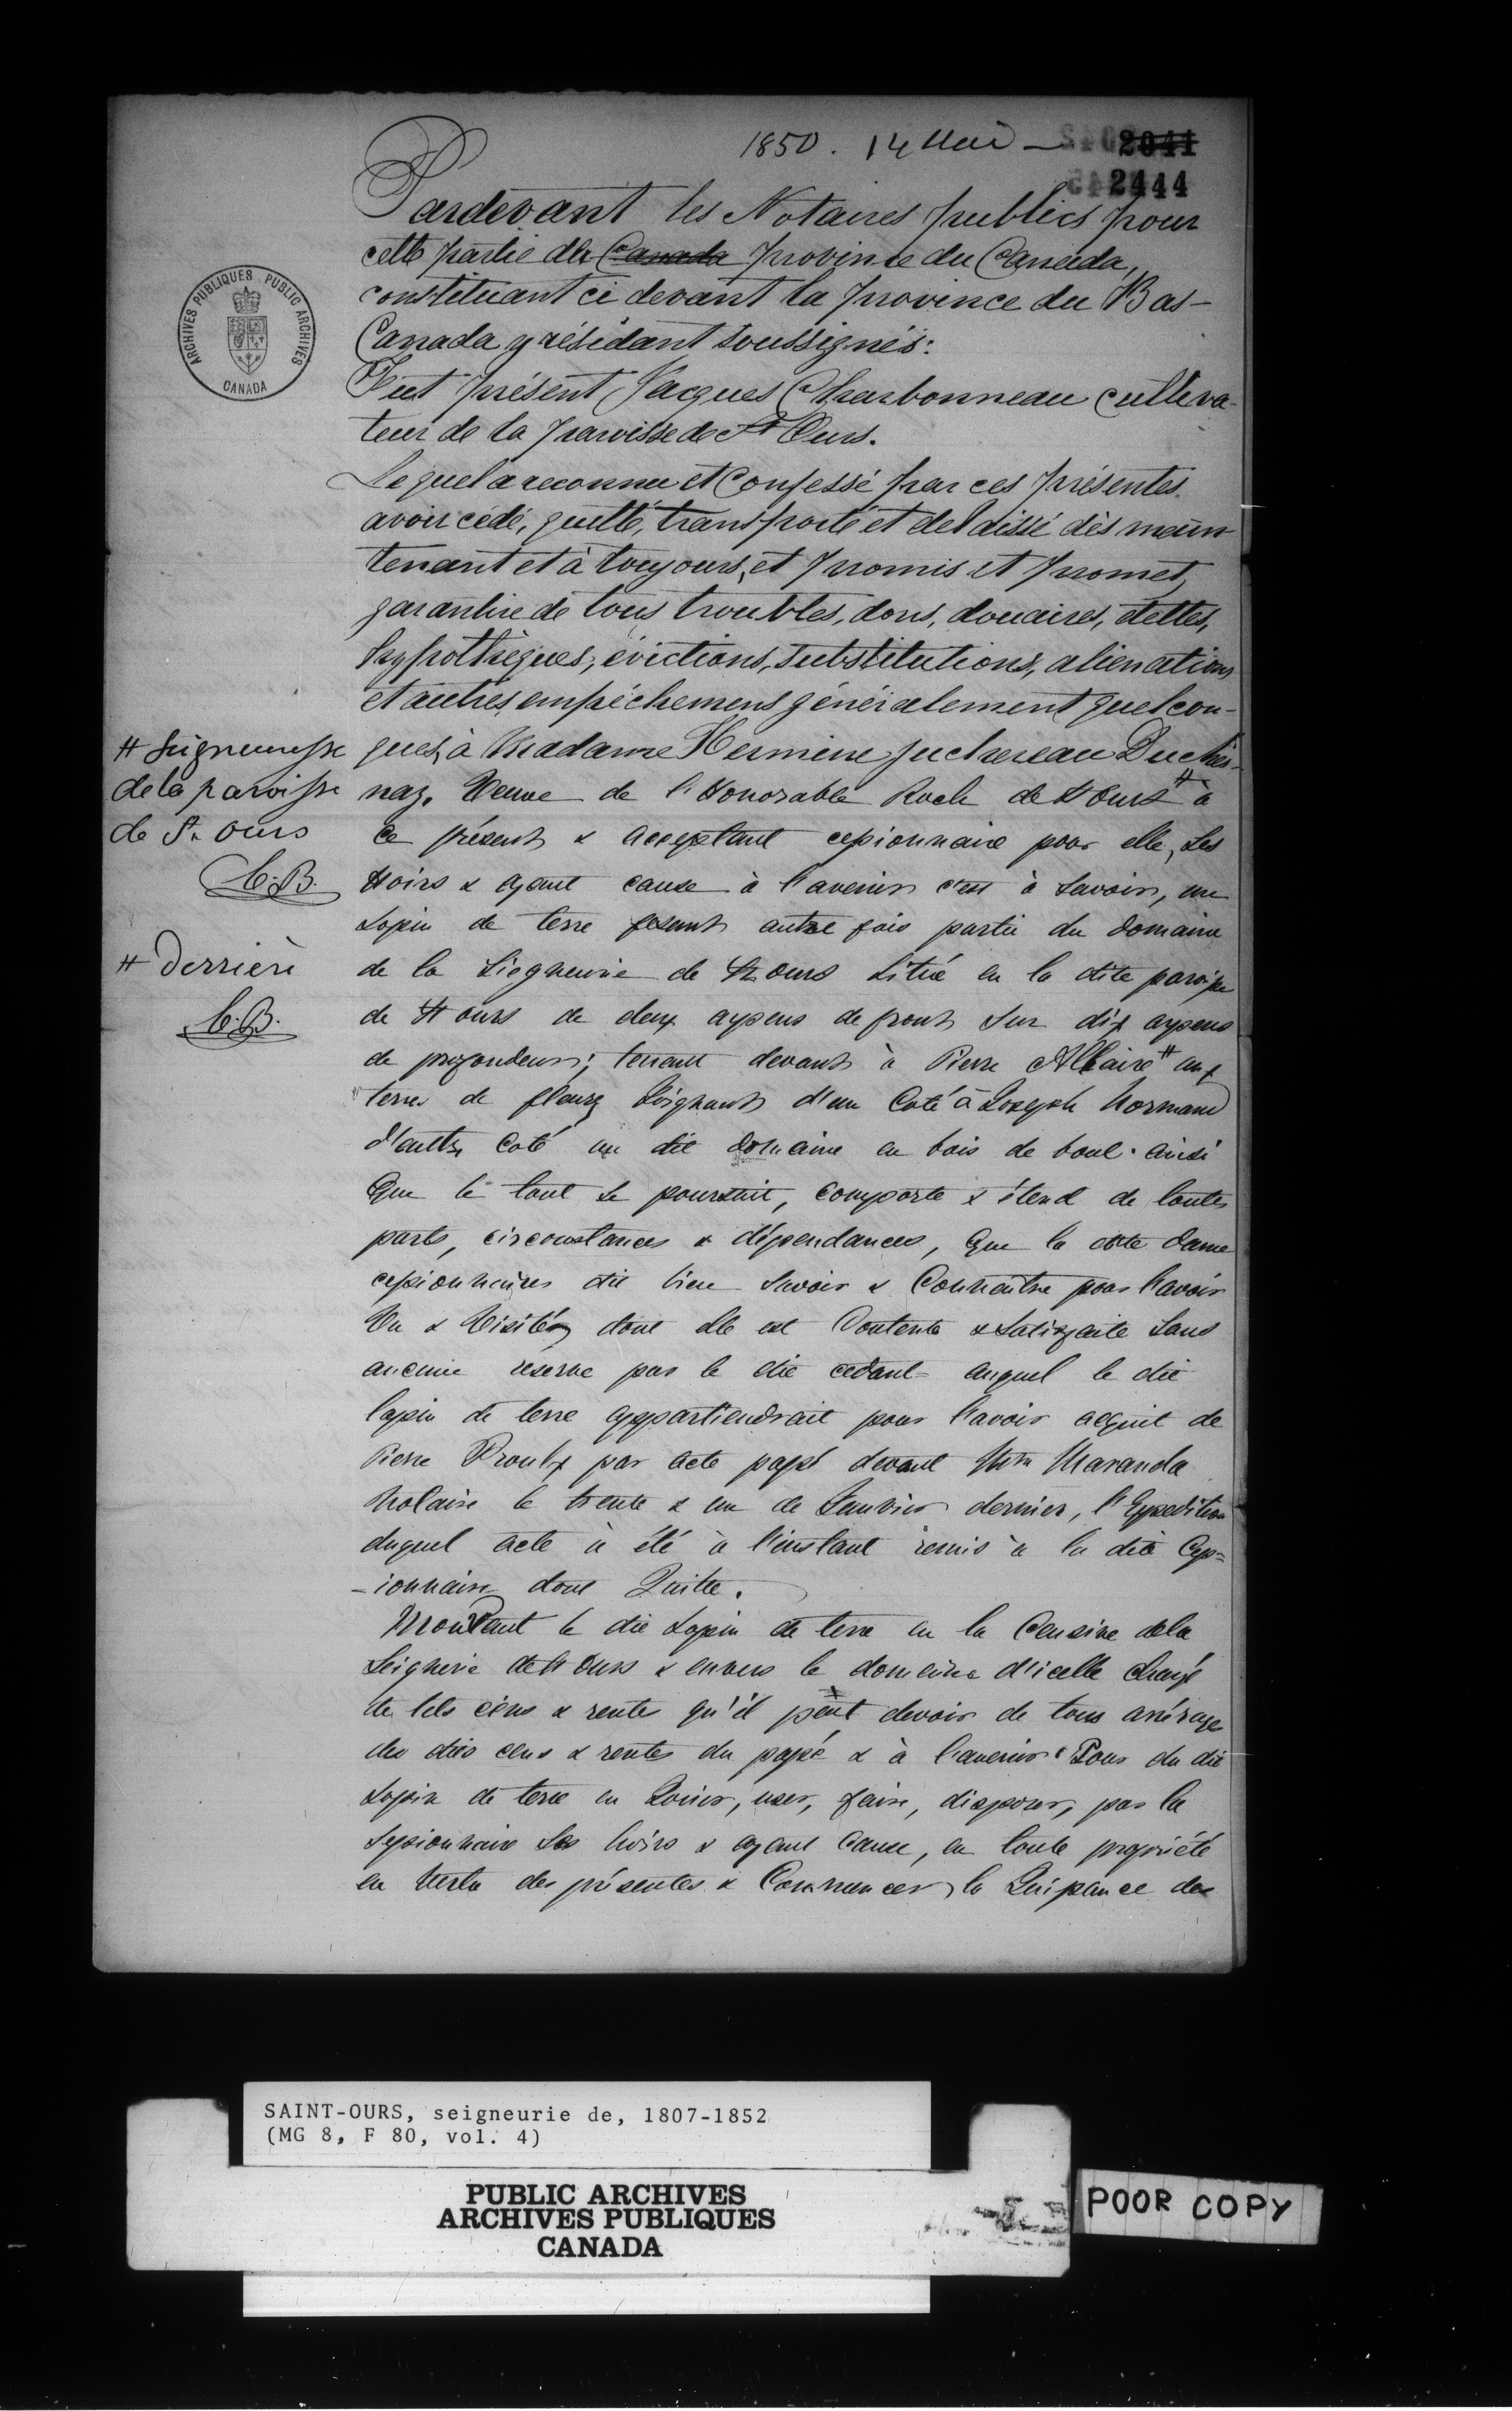 1850. 14 Mai —
2041
2444
Pardevant les Notaires publics pour
cette partie de la Canada province du Canada,
constituant ci devant la province du Bas-
Canada y résidant soussignés:
Fut présent Jacques Charbonneau cultiva-
teur de la paroisse de St Ours.
Lequel a reconnu et confessé par ces présentes
avoir cédé, quitté, transporté et delaissé dès main
tenant et à toujours, et promis et promet
garantir de tous troubles, dons, douaires, dettes,
hypothèques, évictions, substitutions, alienations
et autres empêchemens généralement quelcon-
ques, à Madame Hermine Juchereau Duches-
nay. Veuve de l'Honorable Roch de St Ours # à
ce présent & acceptant cessionnaire pour elle, ses
hoirs & ayant cause à l'avenir c'est à savoir, un
Lopin de terre fesant autre fois partie du domaine
de la Siegneurie de St Ours situé en la dite paroisse
de St Ours de deux arpens de front sur dix arpens
de profondeur; tenant devant à Pierre Allaire # aux
terres de fleury d'un coté à Joseph Normand
d'autre coté au dit domaine en bois de bout. ainsi
Que le tout se poursuit, comporte & étend de toutes
parts, circonstances & dépendances, Que la dite dame
cessionnaires dit bien savoir & Connaitre pour l'avoir
Vu & Visité dont elle est Contente & satisfaite sans
aucune reserve par le dit cedant auquel le dit
lopin de terre appartiendrait pour l'avoir acquit de
Pierre Proulx par acte passé devant Mtre Maranda
Notaire le trente & un de Janvier dernier, l'Expedition
duquel acte à été à l'instant remis à la dite Cess=
-ionnaire dont Quitte.
Mouvant le dit Lopin de terre en la Censive de la
Seignerie de St Ours & envers le domaine d'icelle chargé
de tels cens & rente qu'il peut devoir de tous arrérages
des dits cens & rentes du passé & à l'avenir Pour du dit
Lopin de terre en Jouir, user, faire, disposer, par la
Sessionnaire Ses hoirs & ayant Cause, en toute propriété
en Vertu des présentes & Commencer la Jouissance de
# Seigneuresse
de la paroisse
de St Ours
C.B.
# Derrière
C.B.
ARCHIVES PUBLIQUES PUBLIC ARCHIVES
CANADA
SAINT-OURS, seigneurie de, 1807-1852
(MG 8, F 80, vol. 4)
PUBLIC ARCHIVES
ARCHIVES PUBLIQUES
CANADA
POOR COPY